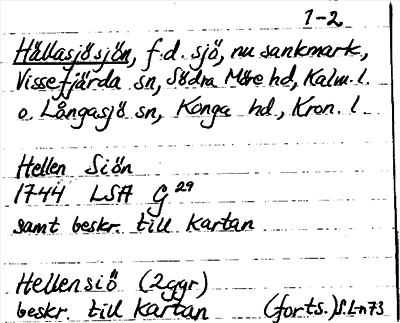 1-2
Hällasjösjön, f.d. sjö, nu sankmark,
Vissefjärda sn, Södra Möre hd, Kalm. l.
o. Långasjö sn, Konga hd, Kron. l.
Hellen Siön
1744 LSA G 29
samt beskr. till kartan
Hellensiö (2ggr)
beskr. till kartan (forts.)